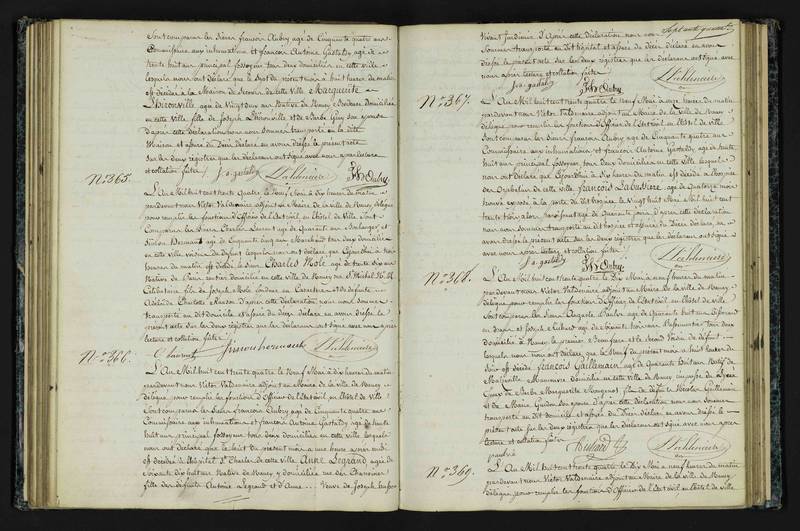 Sont comparus les Sieurs françois Aubry agé de Cinquante quatre ans
Commissaire aux inhumations et françois Antoine Gastaldy agé de
trente huit ans principal fossoyeur tous deux domiciliés en cette ville
lesquels nous ont déclaré que le Sept du présent mois à huit heures du matin
est décédée à la Maison de Secours de cette Ville Marguerite
Lhironville agée de Vingt deux ans Native de Nancy Brodeuse domiciliée
en cette Ville, fille de Joseph Lhironville et de Barbe
d'après cette déclaration nous nous sommes transportés en la dite
Maison et assuré du Décès déclaré en avons dressé le présent acte
Sur les deux registres que les déclarants ont Signé avec nous après lecture
et collation faite
N.o 365.
L'An Mil huit cent trente Quatre le Neuf Mai à dix heures du matin
pardevant nous Victor Valdenaire adjoint au Maire de la Ville de Nancy délégué
pour remplir les fonctions d'Officier de l'Etat civil, en l'hôtel de Ville Sont
Comparus les Sieurs Charles Laurent agé de Quarante ans Boulanger et
Simon agé de Cinquante cinq ans Marchand tous deux domiciliés
en cette Ville voisins du défunt lesquels nous ont déclaré que Cejourd'hui à
heures du matin est décédé le Sieur Charles Mole agé de trente dix ans
Natif de Paris domicilié en cette ville de Nancy rue St Michel No
Célibataire fils de Joseph Mole et de défunte
Adélaïde Charlotte d'après cette déclaration nous nous sommes
transportés au dit domicile et assuré du décès déclaré en avons dressé le
présent acte Sur les deux registres que les déclarants ont signé avec nous après
lecture et collation faite
N.o 366.
L'An Mil huit cent trente quatre le Neuf Mai à dix heures du matin
pardevant nous Victor Valdenaire adjoint au Maire de la Ville de Nancy
délégué pour remplir les fonctions d'Officier de l'Etat civil en l'hôtel de Ville
Sont comparus les Sieurs françois Aubry agé de Cinquante quatre ans
Commissaire aux inhumations et françois Antoine Gastaldy agé de trente
huit ans principal fossoyeur tous deux domiciliés en cette ville lesquels
nous ont déclaré que le huit du présent mois à une heure après midi
est décédée à l'hôpital St Charles de cette ville Anne Legrand agée de
Soixante dix huit ans Native de Nancy y domiciliée rue des Chanoines
fille des défunts Antoine Legrand et d'Anne ... Veuve de Joseph
Sept cent quarante
vivant Jardinier. D'après cette déclaration nous nous
Sommes transportés au dit hôpital et assuré du Décès déclaré en avons
dressé le présent acte Sur les deux registres que les déclarants ont signé avec
nous après lecture et collation faite
N.o 367.
L'An Mil huit cent trente quatre le Neuf Mai à onze heures du matin
pardevant nous Victor Valdenaire adjoint au Maire de la Ville de Nancy
délégué pour remplir les fonctions d'Officier de l'Etat civil en l'hôtel de Ville
Sont comparus les Sieurs françois Aubry agé de Cinquante quatre ans
Commissaire aux inhumations et françois Antoine Gastaldy, agé de trente
huit ans principal fossoyeur, tous deux domiciliés en cette ville lesquels
nous ont déclaré que Cejourd'hui à dix heures du matin est décédé à l'hospice
des Orphelins de cette ville, François agé de Quatorze mois
trouvé exposé à la porte du dit hospice le Vingt huit Mars Mil huit cent
trente trois alors d'après cette déclaration
nous nous sommes transportés au dit hospice et assuré du Décès déclaré, en
avons dressé le présent acte sur les deux registres que les déclarants ont signé
avec nous après lecture et collation faite
N.o 368.
L'An Mil huit cent trente quatre le Dix Mai à neuf heures du matin
pardevant nous Victor Valdenaire adjoint au Maire de la Ville de Nancy
délégué pour remplir les fonctions d'Officier de l'Etat civil en l'hôtel de ville
Sont comparus les Sieurs Auguste agé de Quarante huit ans
et Joseph agé de Soixante trois ans tous deux
domiciliés à Nancy, le premier et le second Voisin du défunt
lesquels nous ont déclaré, que le Neuf du présent mois à huit heures du
Soir est décédé François Gaillemain agé de Quarante huit ans Natif de
Manoeuvre domicilié en cette Ville de Nancy
Epoux de Barbe Marguerite fils de défunts Nicolas Guillemin
et de Marie d'après cette déclaration nous nous sommes
transportés au dit domicile et assuré du Décès déclaré en avons dressé le
présent acte Sur les deux registres que les déclarants ont signé avec nous après
lecture et collation faite
N.o 369.
L'An Mil huit cent trente quatre le Dix Mai à neuf heures du matin
pardevant nous Victor Valdenaire adjoint au Maire de la Ville de Nancy
délégué pour remplir les fonctions d'Officier de l'Etat civil en l'hôtel de Ville